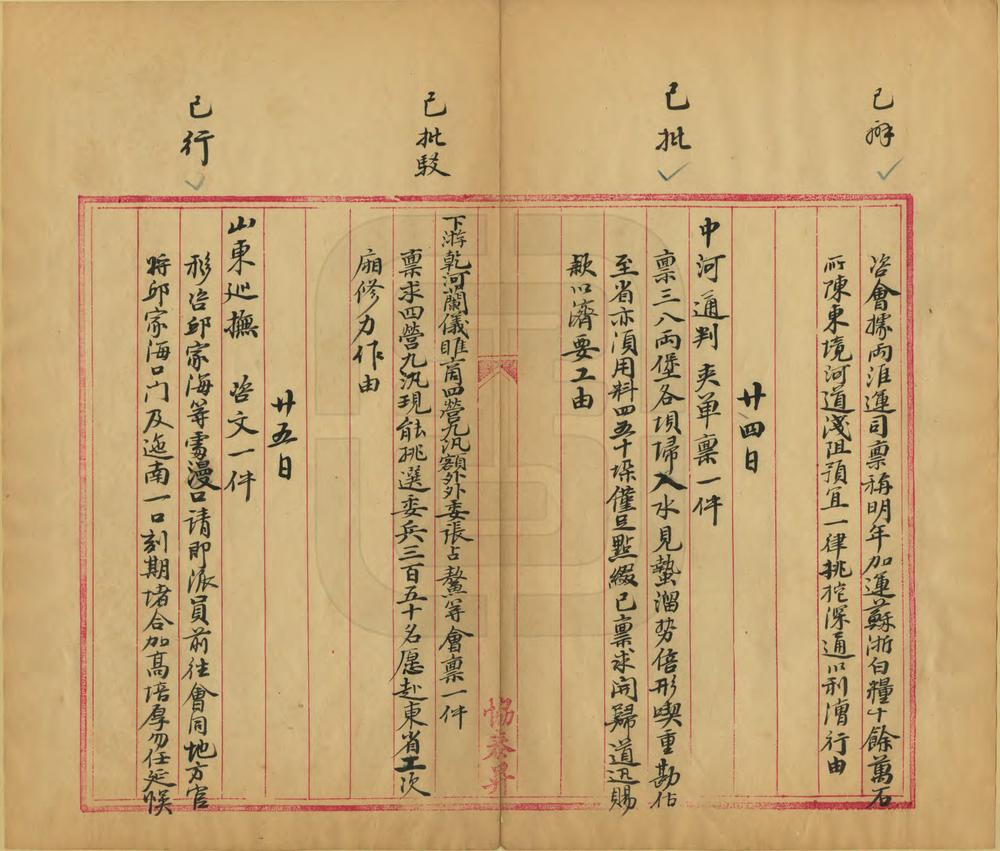 已辦
咨會據兩淮運司禀稱明年加運蘇浙白糧十餘萬石
所陳東境河道淺阻預宜一律挑挖深通以利漕行由
廿四日
已批
中河通判 夾单禀一件
禀三八兩堡各項埽入水見蟄溜势倍形喫重勘估
至省亦須用料四五十垜僅足點綴已禀求開歸道迅賜
款以濟要工由
已批駁
下游乾河蘭儀睢商四營九汛額外外委張占鰲等會禀一件
禀求四營九汛現能挑選委兵三百五十名愿赴東省工次
廂修力作由
廿五日
已行
山東巡撫 咨文一件
移咨邱家海等處漫口請即派員前往會同地方官
将邱家海口门及迤南一口刻期堵合加高培厚勿任延悞
協泰昇